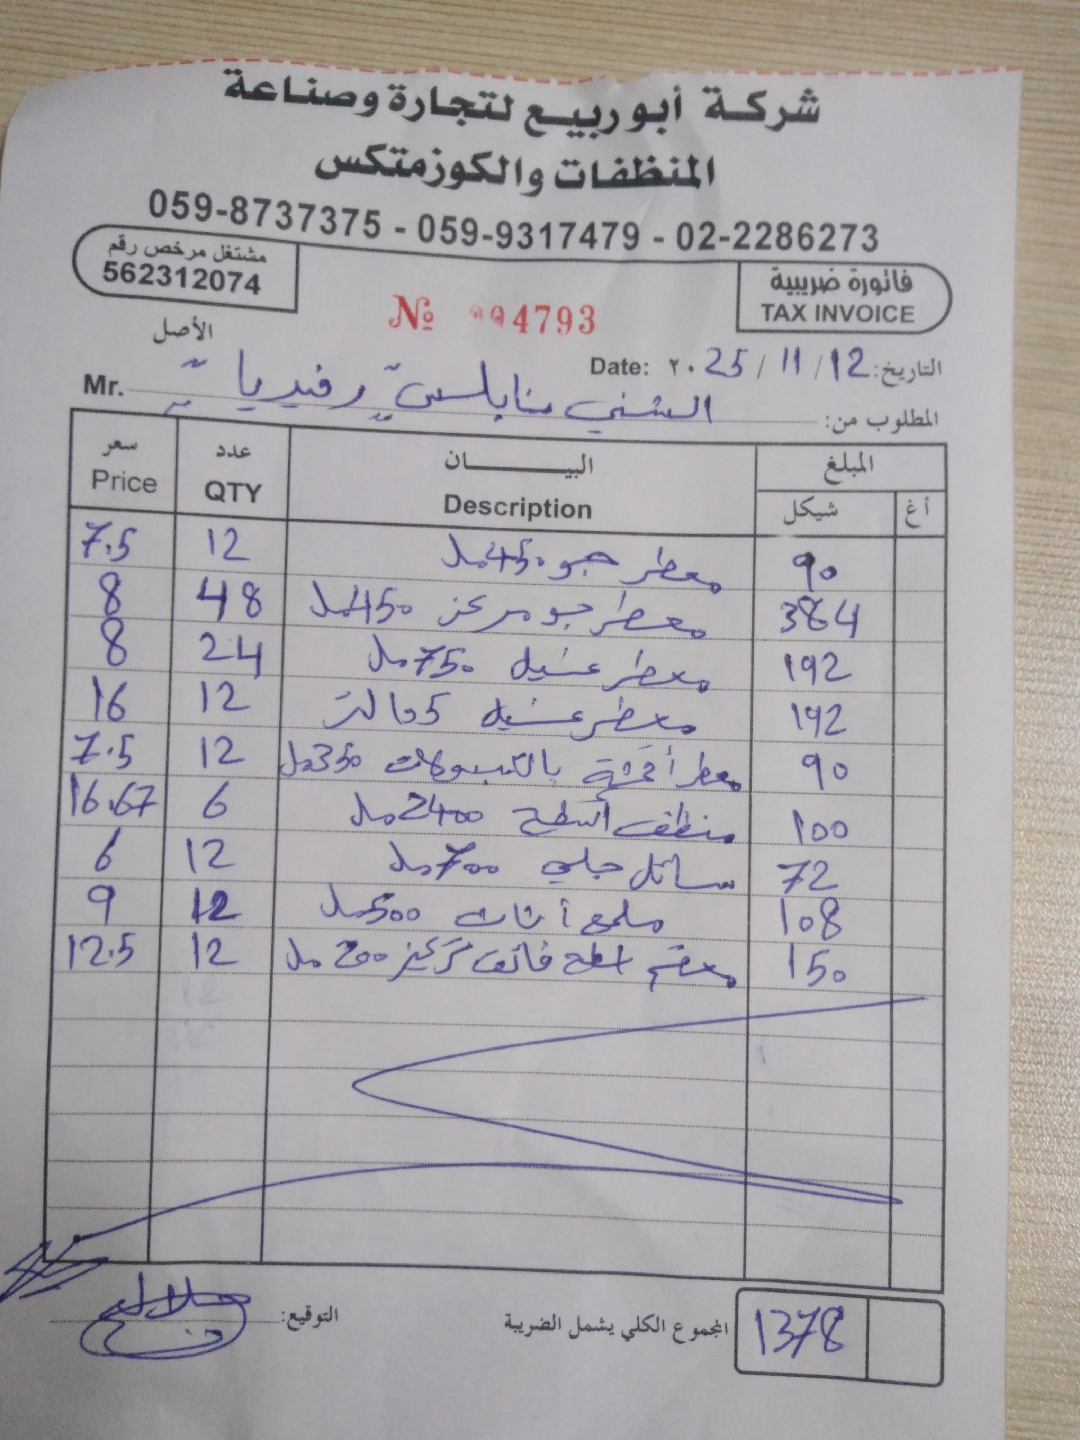 شركة أبو ربيع لتجارة وصناعة
المنظفات والكوزمتكس
059-8737375 - 059-9317479 - 02-2286273
فاتورة ضريبية
TAX INVOICE
مشتغل مرخص رقم
562312074
№ 004793
الأصل
التاريخ: 12 / 11 / ٢٠25 Date:
المطلوب من: الشني نابلس رفيديا Mr.
المبلغ البيــــــان عدد سعر
أغ شيكل Description QTY Price
90 معطر جو 450 مل 12 7.5
384 معطر جو مركز 450 مل 48 8
192 معطر غسيل 750 مل 24 8
192 معطر غسيل 5 لتر 12 16
90 معطر أقمشة بالكبسولات 350 مل 12 7.5
100 منظف أسطح 2400 مل 6 16.67
72 سائل جلي 700 مل 12 6
108 ملمع أثاث 500 مل 12 9
150 معقم اسطح فائق تركيز 200 مل 12 12.5
1378 المجموع الكلي يشمل الضريبة
التوقيع: